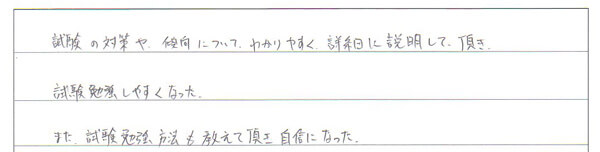 試験の対策や、傾向について、わかりやすく、詳細に説明して、頂き、
試験勉強しやすくなった。
また、試験勉強方法も教えて頂き自信になった。